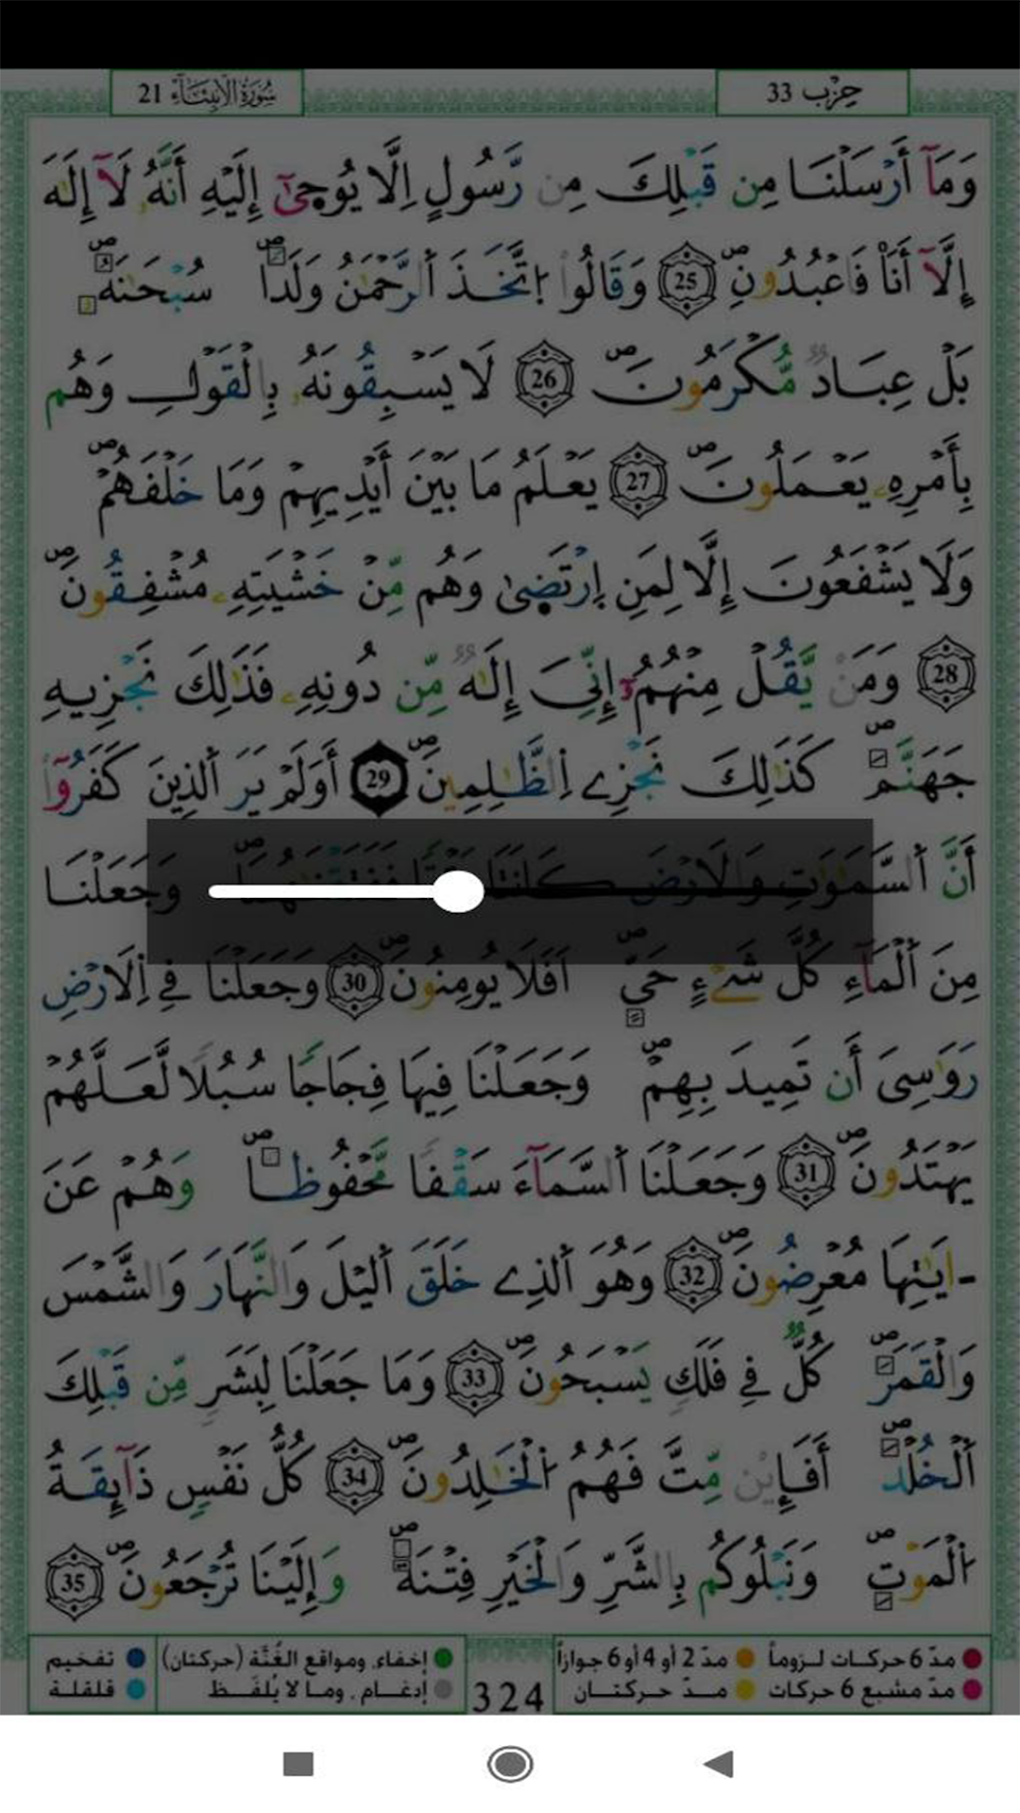 سُورَةُ الْأَنبِيَاء 21
حِزْب 33
وَمَآ أَرْسَلْنَا مِن قَبْلِكَ مِن رَّسُولٍ اِلَّا يُوحَىٰٓ إِلَيْهِ أَنَّهُۥ لَآ إِلَٰهَ
إِلَّآ أَنَا۠ فَاعْبُدُونِۖ 25 وَقَالُوا اُ۪تَّخَذَ اَ۬لرَّحْمَٰنُ وَلَداٗۖ سُبْحَٰنَهُۥۖ
بَلْ عِبَادٞ مُّكْرَمُونَۖ 26 لَا يَسْبِقُونَهُۥ بِالْقَوْلِ وَهُم
بِأَمْرِهِۦ يَعْمَلُونَۖ 27 يَعْلَمُ مَا بَيْنَ أَيْدِيهِمْ وَمَا خَلْفَهُمْۖ
وَلَا يَشْفَعُونَ إِلَّا لِمَنِ اِ۪رْتَضَىٰ وَهُم مِّنْ خَشْيَتِهِۦ مُشْفِقُونَۖ
28 وَمَنْ يَّقُلْ مِنْهُمُۥٓ إِنِّيَ إِلَٰهٞ مِّن دُونِهِۦ فَذَٰلِكَ نَجْزِيهِ
جَهَنَّمَۖ كَذَٰلِكَ نَجْزِے اِ۬لظَّٰلِمِينَۖ 29 أَوَلَمْ يَرَ اَ۬لذِينَ كَفَرُوٓا
أَنَّ اَ۬لسَّمَٰوَٰتِ وَالَارْضَ كَانَتَا رَتْقاٗ فَفَتَقْنَٰهُمَاۖ وَجَعَلْنَا
مِنَ اَ۬لْمَآءِ كُلَّ شَےْءٍ حَيٍّۖ اَفَلَا يُومِنُونَۖ 30 وَجَعَلْنَا فِے اِ۬لَارْضِ
رَوَٰسِيَ أَن تَمِيدَ بِهِمْۖ وَجَعَلْنَا فِيهَا فِجَاجاٗ سُبُلاٗ لَّعَلَّهُمْ
يَهْتَدُونَۖ 31 وَجَعَلْنَا اَ۬لسَّمَآءَ سَقْفاٗ مَّحْفُوظاٗۖ وَهُمْ عَنَ
ـايَٰتِهَا مُعْرِضُونَۖ 32 وَهُوَ اَ۬لذِے خَلَقَ اَ۬ليْلَ وَالنَّهَارَ وَالشَّمْسَ
وَالْقَمَرَۖ كُلّٞ فِے فَلَكٖ يَسْبَحُونَۖ 33 وَمَا جَعَلْنَا لِبَشَرٖ مِّن قَبْلِكَ
اَ۬لْخُلْدَۖ أَفَإِيْن مِّتَّ فَهُمُ اُ۬لْخَٰلِدُونَۖ 34 كُلُّ نَفْسٖ ذَآئِقَةُ
اُ۬لْمَوْتِۖ وَنَبْلُوكُم بِالشَّرِّ وَالْخَيْرِ فِتْنَةٗۖ وَإِلَيْنَا تُرْجَعُونَۖ 35
مدّ 6 حركات لـزوماً
مدّ 2 أو 4 أو 6 جوازاً
إخفاء، ومواقع الغُنَّة (حركتان)
تفخيم
مدّ مشبع 6 حركات
مـدّ حـركتـان
324
إدغـام ، ومـا لا يُلفَـظ
قلقلـة